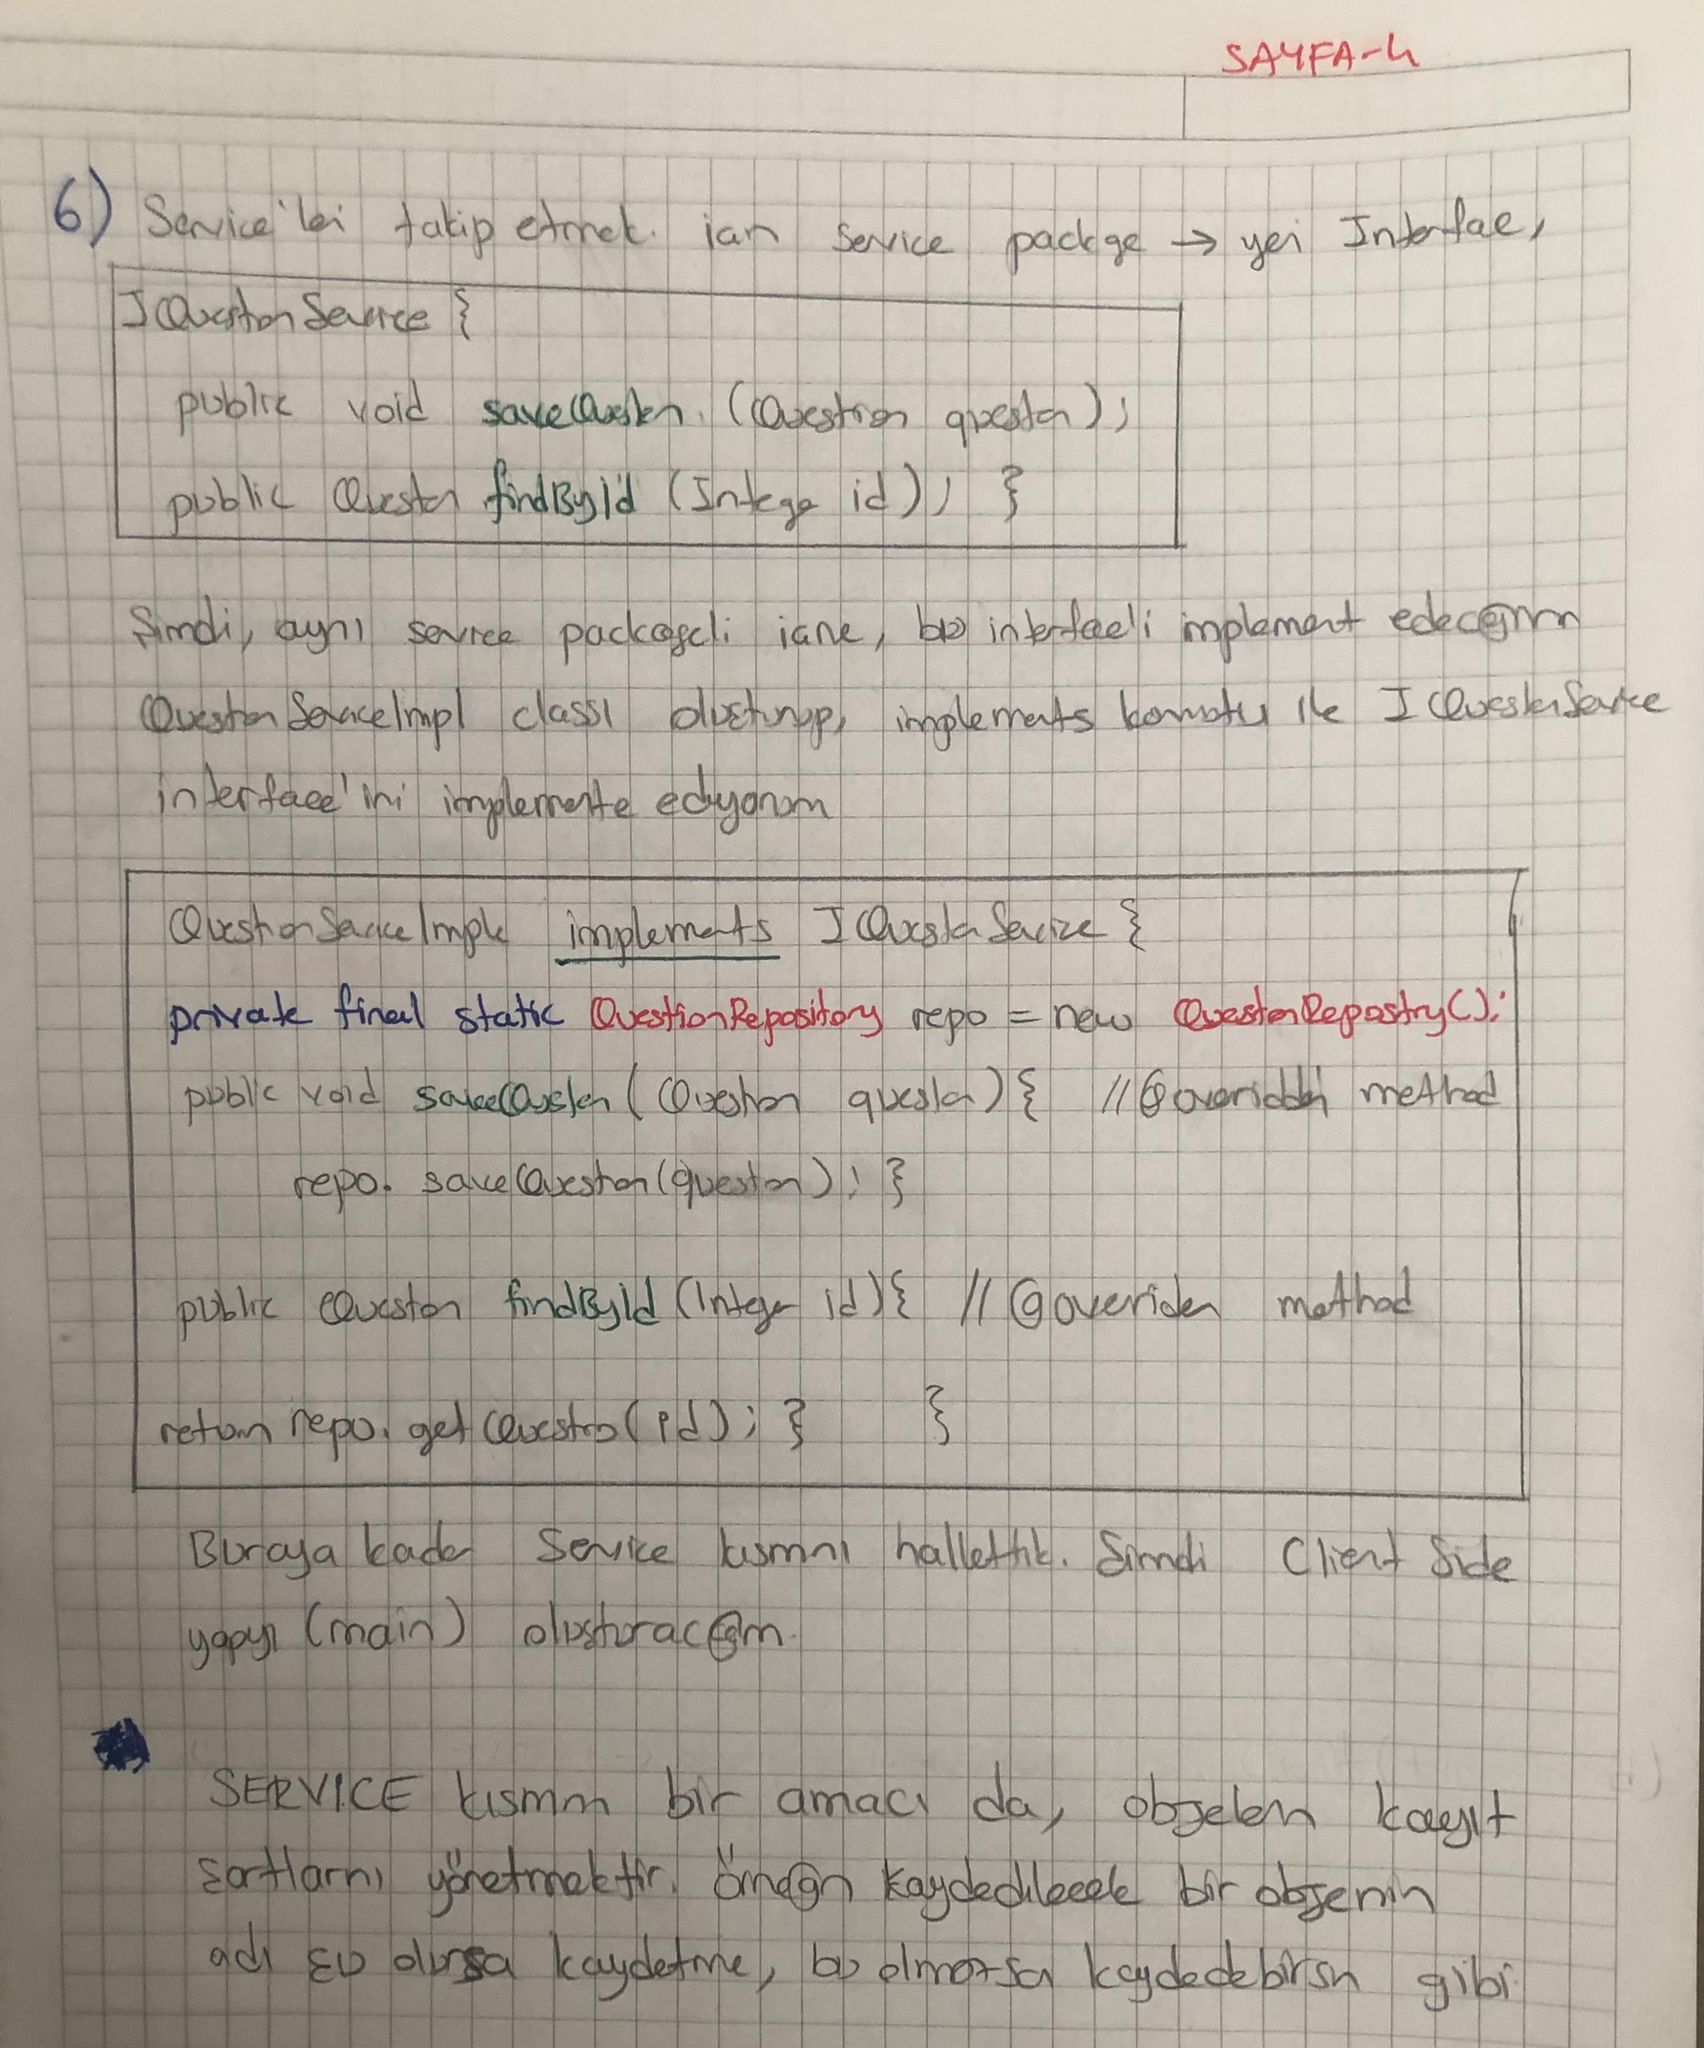 SAYFA-4
6) Service'leri takip etmek için service package → yeni Interface,
IQuestionService {
public void saveQuestion (Question question);
public Question findById (Integer id); }
Şimdi, aynı service package'i içine, bu interface'i implement edeceğim
QuestionServiceImpl classı oluşturup, implements komutu ile IQuestionService
interface'ini implemente ediyorum
QuestionServiceImple implements IQuestionService {
private final static QuestionRepository repo = new QuestionRepository();
public void saveQuestion (Question question) { // @overridden method
repo. saveQuestion(question); }
public Question findById (Integer id) { // @overriden method
return repo. getQuestion(id); } }
Buraya kadar Service kısmını hallettik. Şimdi Client Side
yapıyı (main) oluşturacağım.
SERVICE kısmın bir amacı da, objelerin kayıt
şartlarını yönetmektir. Örneğin kaydedilecek bir objenin
adı şu olursa kaydetme, bu olmazsa kaydedebilirsin gibi